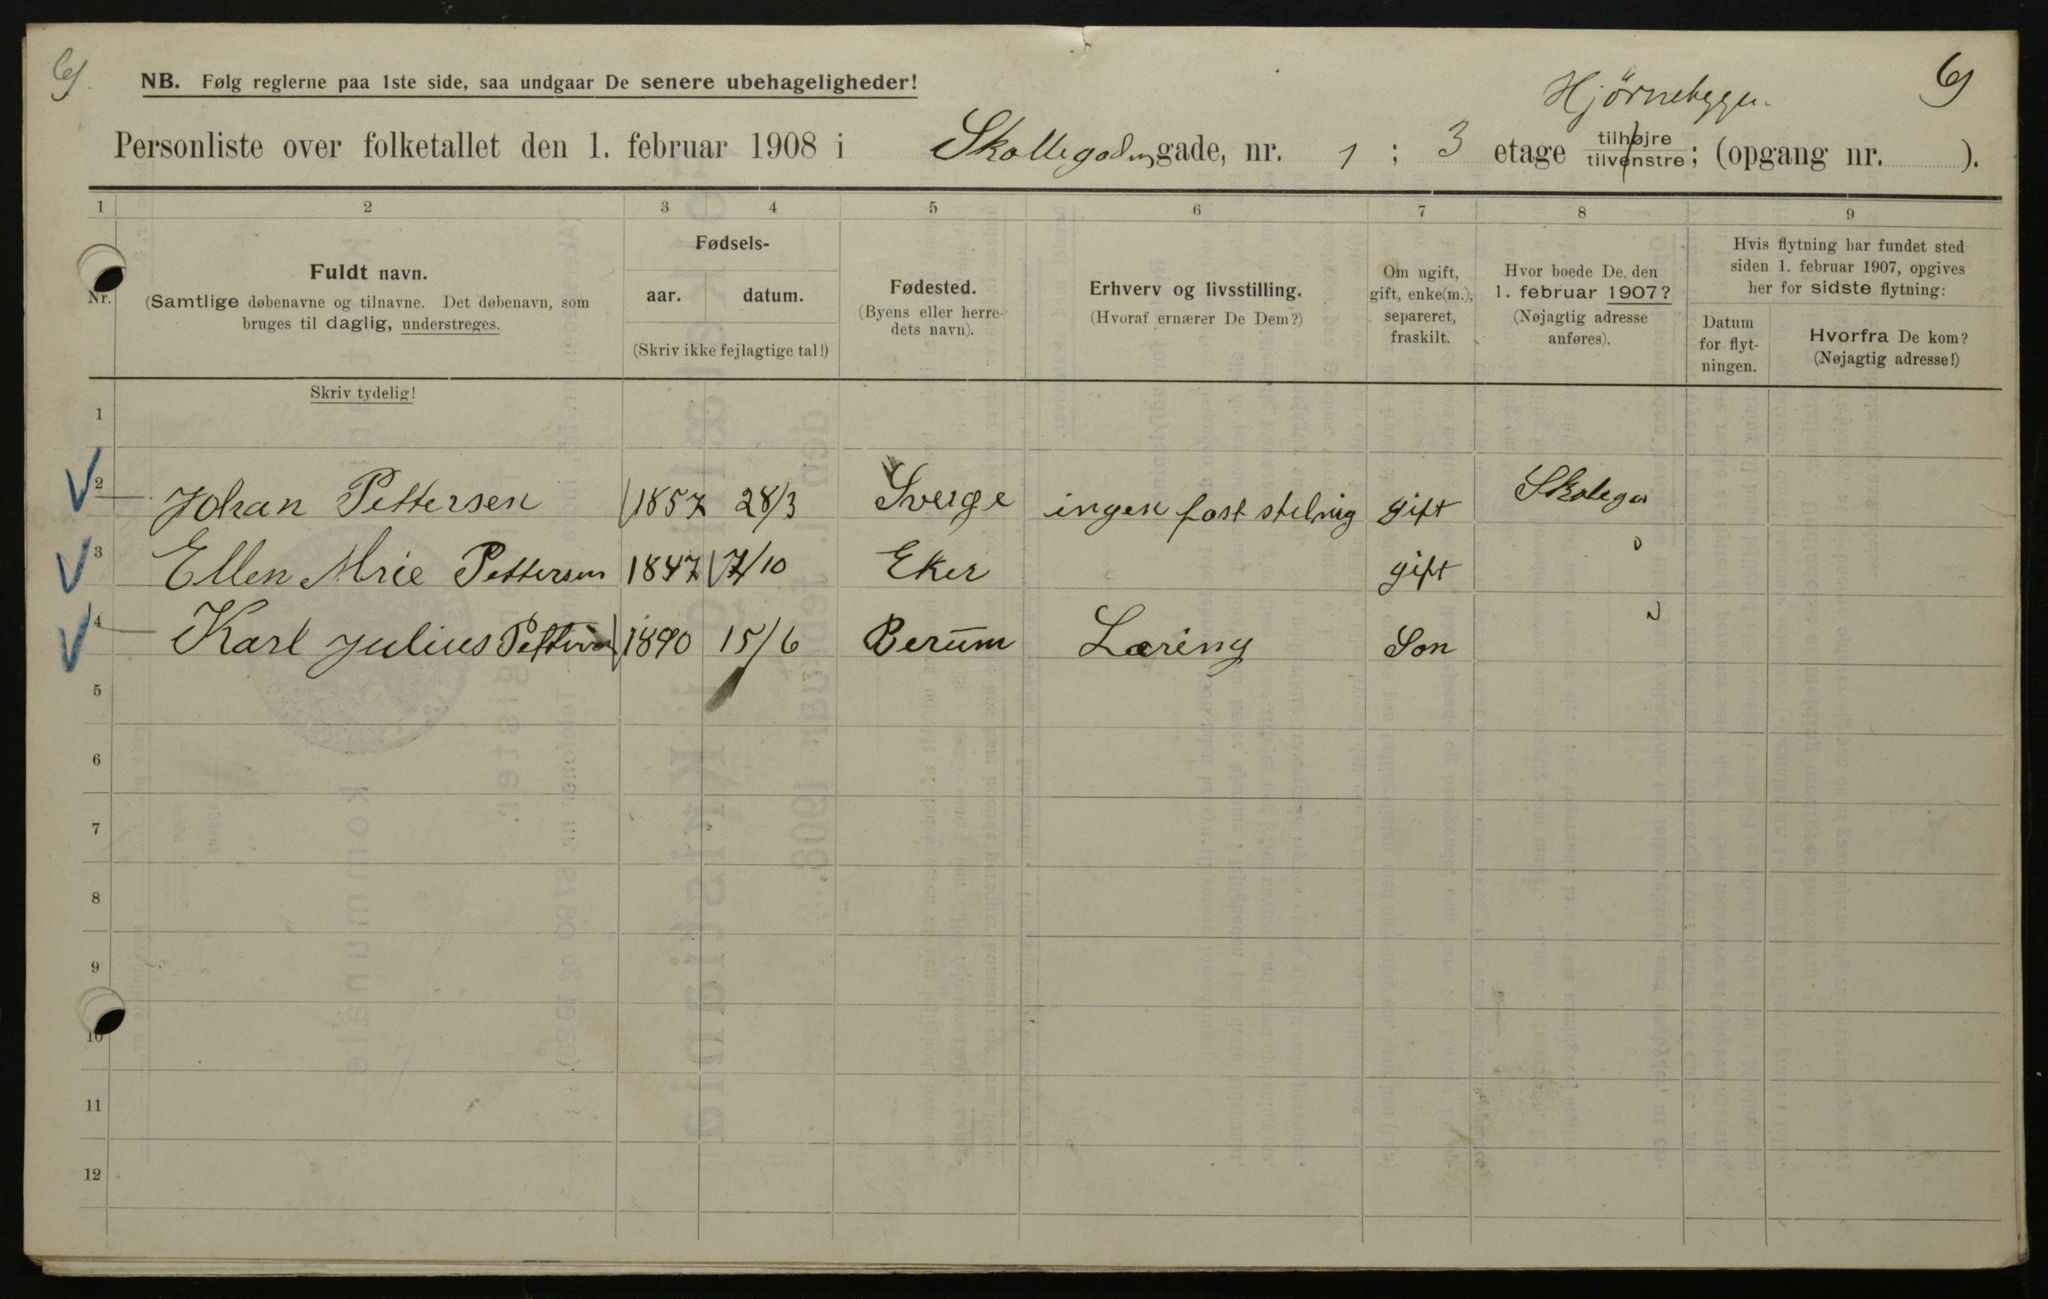 6
NB. Følg reglerne paa 1ste side, saa undgaar De senere ubehageligheder!
Hjørnebygg.
6
Personliste over folketallet den 1. februar 1908 i Skollegaden gade, nr. 1 ; 3 etage tilhøjre tilvenstre ; (opgang nr. ).
1 2 3 4 5 6 7 8 9
Nr.
Fuldt navn.
(Samtlige døbenavne og tilnavne. Det døbenavn, som
bruges til daglig, understreges.
Fødsels-
aar. datum.
(Skriv ikke fejlagtige tal!)
Fødested.
(Byens eller herre-
dets navn).
Erhverv og livsstilling.
(Hvoraf ernærer De Dem?)
Om ugift,
gift, enke(m.),
separeret,
fraskilt.
Hvor boede De den
1. februar 1907?
(Nøjagtig adresse
anføres).
Hvis flytning har fundet sted
siden 1. februar 1907, opgives
her for sidste flytning:
Datum
for flyt-
ningen.
Hvorfra De kom?
(Nøjagtig adresse!)
Skriv tydelig!
1
2 Johan Pettersen 1857 28/3 Sverge ingen fast stelnig gift Skolega
3 Ellen Mrie Pettersen 1847 7/10 Eker gift "
4 Karl Julius 1890 15/6 Berum Læring Son "
5
6
7
8
9
10
11
12